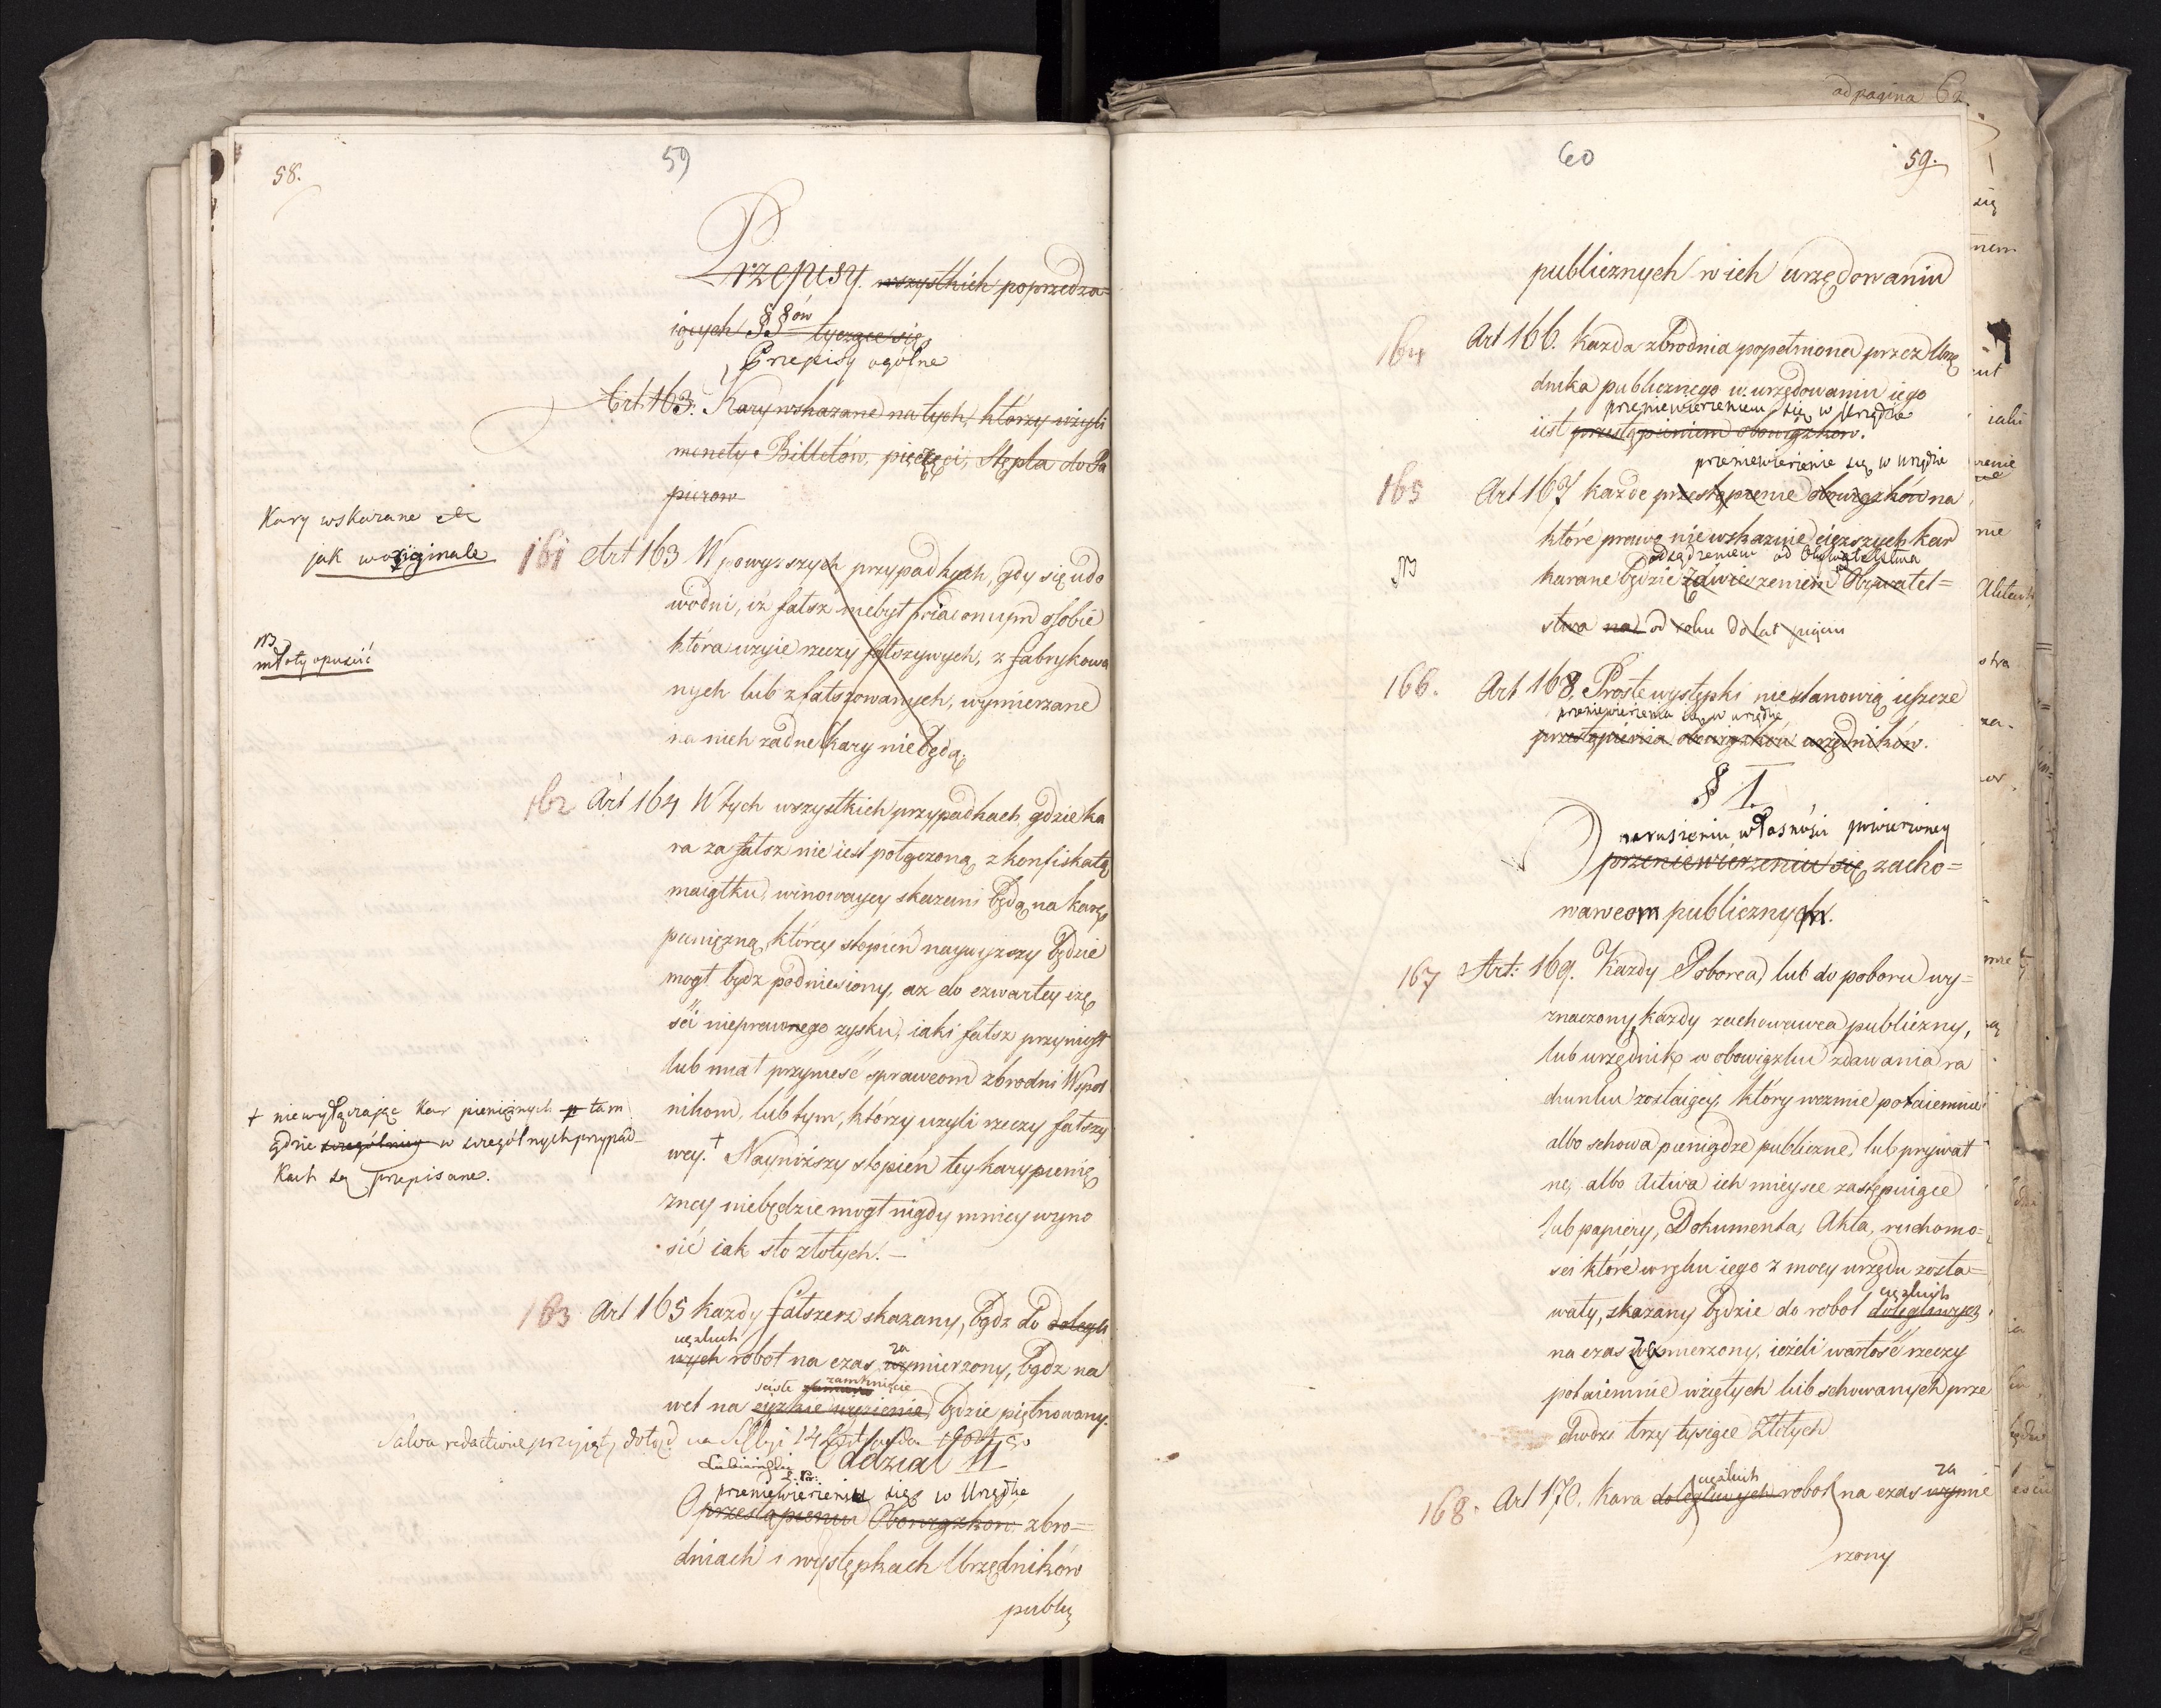 58.
59
Przepisy wszystkich poprzedza=
iących §§ów tyczące się
Przepisy ogólne
Art 163. Kary wskazane na tych, którzy użyli
monety, Billetów, pieczęci, Stępla do Pa
pierow
Kary wskazane etc
jak w originale
161 Art 163 W powyższych przypadkach, gdy się udo
wodni, iż fałsz niebył wiadomym osobie
która użyie rzeczy fałszywych, z fabrykowa
nych lub zfałszowanych, wymierzane
na nich żadne kary nie będą.
NB
opuścić
162 Art 164 W tych wszystkich przypadkach, gdzie ka
ra za fałsz nie iest połączoną z konfiskatą
maiątku, winowaycy skazani będą na karę
pieniężną, którey stopień naywyższy będzie
mogł bydz podniesiony, aż do czwartey czę
ści nieprawnego zysku, iaki fałsz przyniosł
lub miał przynieść sprawcom zbrodni Wspol
nikom, lub tym, którzy użyli rzeczy fałszy
wey. + Nayniższy stopień tey kary pienię
zney niebędzie mogł nigdy mniey wyno
sić iak sto złotych. –
+ niewyłączając kar pieniężnych tam
gdzie szczególniey w szczególnych przypad-
kach są przepisane.
163 Art 165 każdy fałszerz skazany, bądz do dolegli
ciężkich
wych robot na czas wymierzony, bądz na
za
ściśłe zamknięcie
wet na ciężkie więzienie, będzie piętnowany.
Salva redactione przyięty dotąd na Sessyi 14
Oddział II
przeniewierzeniu się w Urzędzie
O przestąpieniu Obowiązków zbro=
dniach i występkach Urzędników
publi
ad pagina 62.
60
59.
publicznych w ich urzędowaniu
164 Art 166. Każda zbrodnia popełniona przez Urzę
dnika publicznego w urzędowaniu iego
przeniewierzeniem się w Urzędzie
iest przestąpieniem obowiązkow.
przeniewierzenie się w urzędzie
165 Art 167 każde przestąpienie obowiązków na
które prawo nie wskazuie cięższych kar
odsądzeniem od Obywatelstwa
NB karane będzie zawieszeniem Obywatel=
stwa na od roku do lat pięciu
166. Art 168. Proste występki nie stanowią ieszcze
przeniewierzenia się w urzędzie
przestąpienia obowiązków urzędników.
§ I.
O naruszeniu własności powierzoney
przeniewierzeniu się zacho=
wawcom publicznym.
167 Art: 169. Każdy Poborca, lub do poboru wy=
znaczony, każdy zachowawca publiczny,
lub urzędnik w obowiązku zdawania ra
chunku zostaiący, który wezmie potaiemnie
albo schowa pieniądze publiczne, lub prywat
ne, albo Activa ich mieysce zastępuiące
lub papiery, Dokumenta, Akta, ruchomo=
ści które w ręku iego z mocy urzędu zosta=
ciężkich
wały, skazany będzie do robot dolegliwych
na czas zamierzony, ieżeli wartość rzeczy
potaiemnie wziętych lub schowanych prze
chodzi trzy tysiące Złotych
ciężkich za
168. Art 170. kara dolegliwych robot na czas wymie
rzony